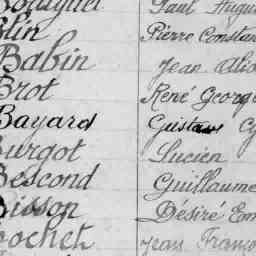 Paul Augu
Blin Pierre Constan
Babin Jean
Brot René Georg
Bayard Gustave Cy
Burgot Lucien
Bescond Guillaume
Bisson Désiré Em
Jean Franço